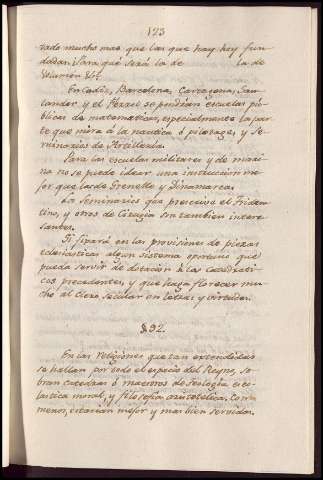 123
rado mucho mas que las que hay hoy fun
didas: ¿Para qué será la de la de
En Cadiz, Barcelona, Cartagena, San
tander y el Ferrol se pondrian escuelas pu
blicas de matematicas, especialmente la par
te que mira á la nautica ó pilotage, y Se
minarios de Artilleria.
Para las escuelas militares y de mari
na no se puede idear una instruccion me
jor que las de Grenoble y Dinamarca.
Los Seminarios que prescrive el Triden
tino, y otros de Cirugia son tambien intere
santes.
Si fixará en las provisiones de piezas
eclesiasticas algun sistema oportuno que
pueda servir de dotacion á los Catedrati
cos precedentes, y que haga florecer mu
cho al Clero secular en letras y virtudes.
§ 92.
En las Religiones que tan extendidas
se hallan por todo el espacio del Reyno, so
bran catedras ó maestros de Teologia esco
lastica moral, y filosofia aristotelica. Con
menos, estarian mejor y mas bien servidas.